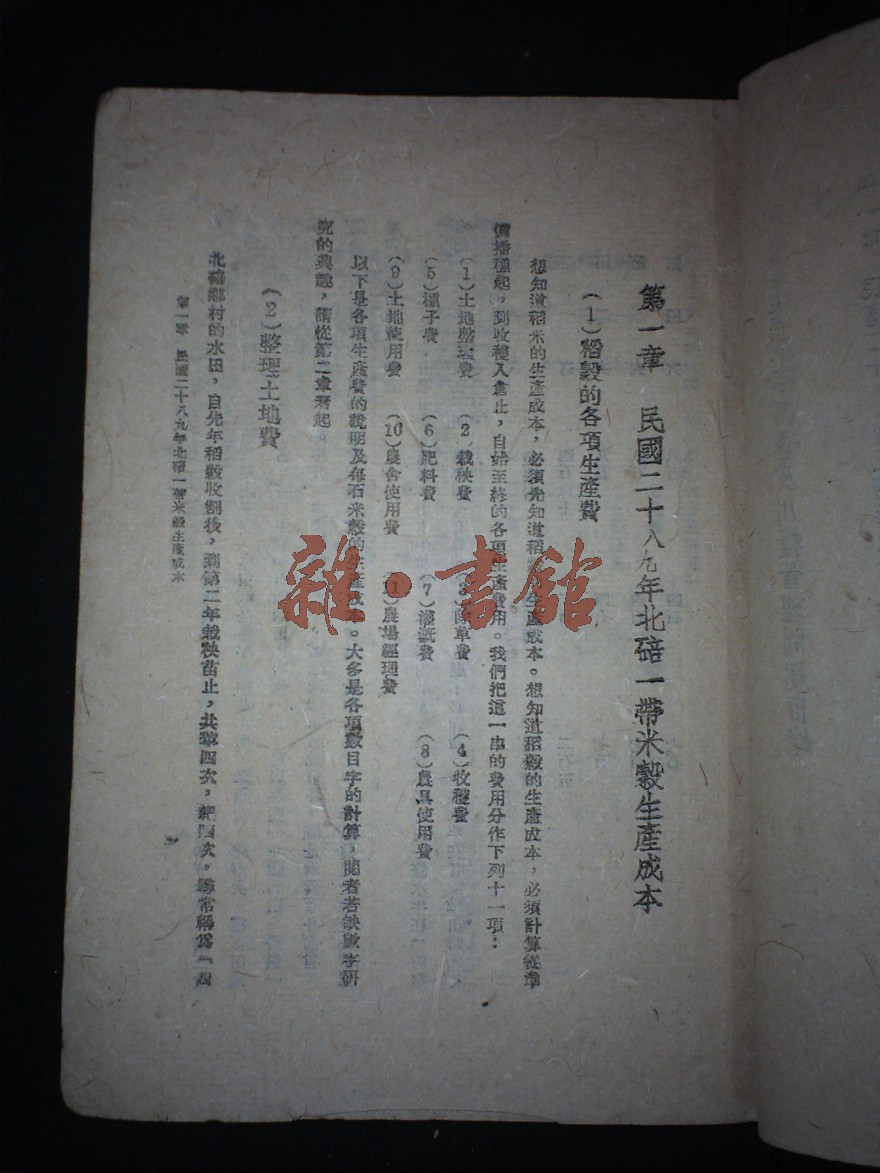 第一章　民國二十八九年北碚一帶米穀生產成本
（1）稻穀的各項生產費
想知道稻米的生產成本，必須先知道稻穀的生產成本。想知道稻穀的生產成本，必須計算從準
備播種起，到收穫入倉止，自始至終的各項生產費用。我們把這一串的費用分作下列十一項：
（1）土地整理費　（2）栽秧費　（3）除草費　（4）收穫費
（5）種子費　（6）肥料費　（7）灌漑費　（8）農具使用費
（9）土地使用費　（10）農舍使用費　（11）農場經理費
以下是各項生產費的說明及每石米穀的生產成本。大多是各項數目字的計算，閱者若缺數字研
究的興趣，請從第二章看起。
（2）整理土地費
北碚鄉村的水田，自先年稻穀收割後，到第二年栽秧苗止，共犂四次，耙四次，尋常稱爲「四
第一章　民國二十八九年北碚一帶米穀生產成本
雜·書館